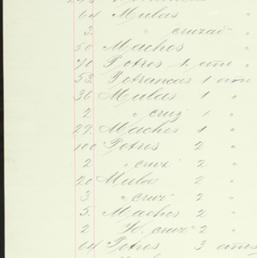 64 Mulas "
3 " cruzad "
50 Machos "
70 Potros 1 año "
53 Potrancas 1 año
36 Mulas 1 "
2 " cruz 1 "
27 Machos 1 "
100 Potros 2 "
2 " cruz 2 "
20 Mulas 2 "
3 " cruz 2 "
5 Machos 2 "
2 " cruz 2 "
64 Potros 3 años